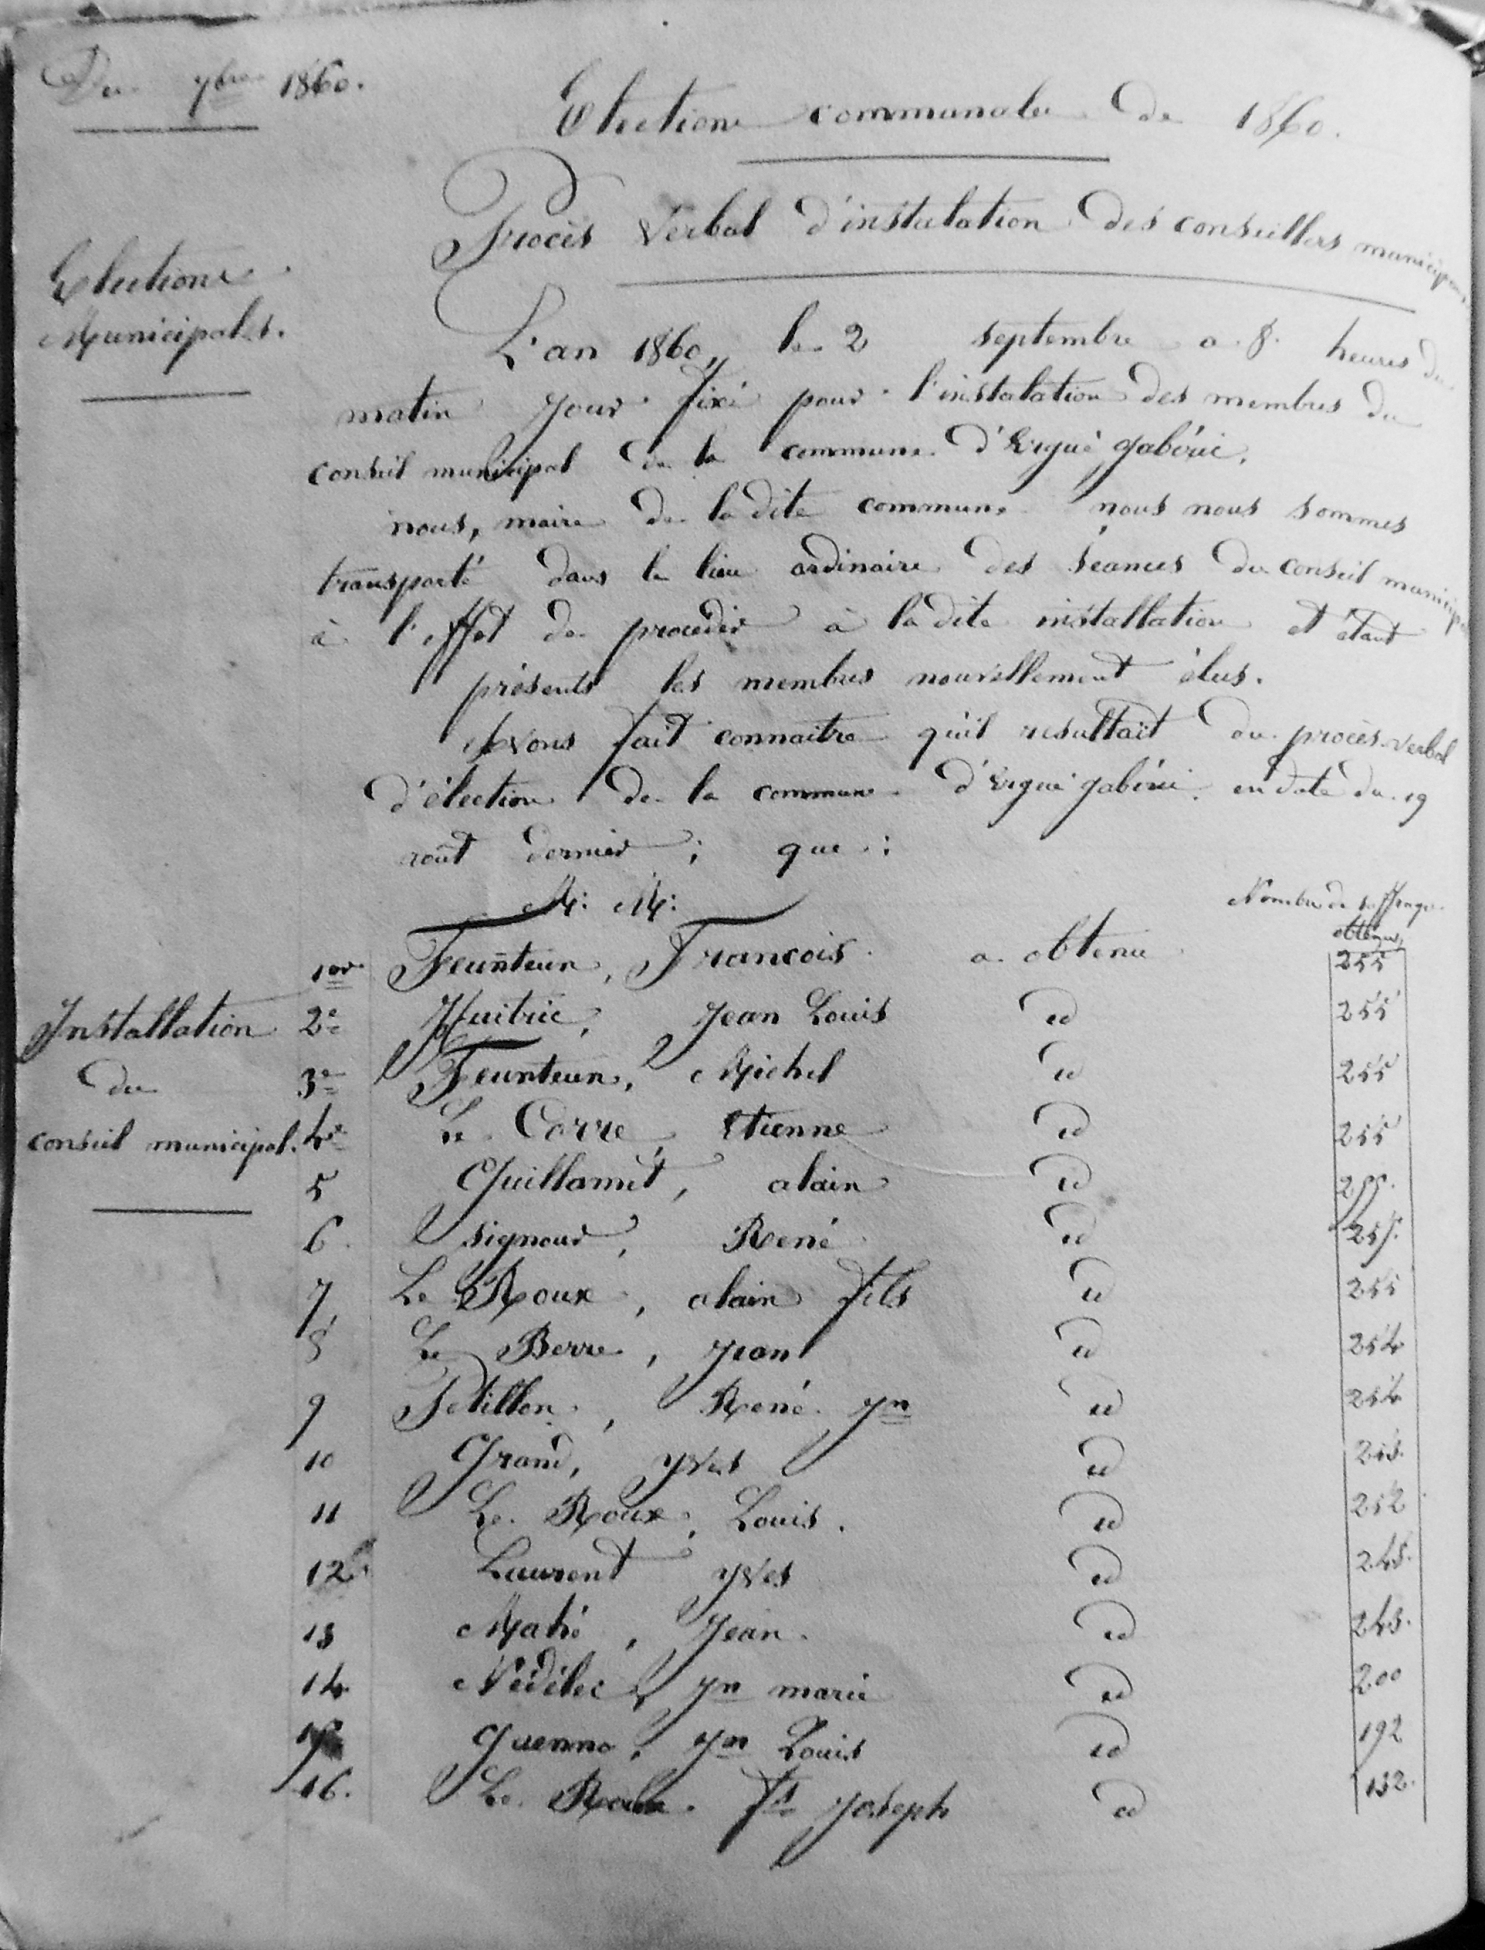 Du 7bre 1860.
Elections communales de 1860.
Procès verbal d'instalation des conseillers municipaux
Elections
Municipales.
L'an 1860, le 2 septembre a 8 heures du
matin jour fixé pour l'instalation des membres du
conseil municipal de la commune d'Ergué gabéric.
nous, maire de la dite commune nous nous sommes
transporté dans le lieu ordinaire des séances du conseil municipal
à l'effet de procéder à la dite installation et étant
présents les membres nouvellement élus.
Avons fait connaitre qu'il resultait du procès-verbal
d'élection de la commune d'Ergué gabéric en date du 19
août dernier ; que :
M. M.
Nombre de suffrages
obtenus
1er Feunteun, Francois a obtenu 255
2e Huitric, Jean Louis id 255
3e Feunteun, Michel id 255
4e Le Corre, Etienne id 255
5 Guillamet, alain id 255.
6 signour, René id 255.
7 Le Roux, alain fils id 255
8 Le Berre, Jean id 254
9 Pétillon, René jn id 254
10 Grand, yves id 253.
11 Le Roux, Louis. id 252
12 Laurent yves id 245.
13 Mahé, Jean. id 243.
14 Nédélec, jn marie id 200
15 Guenno, jn Louis id 192
16. Le Roux. fs Joseph id 132.
Installation
du
conseil municipal.